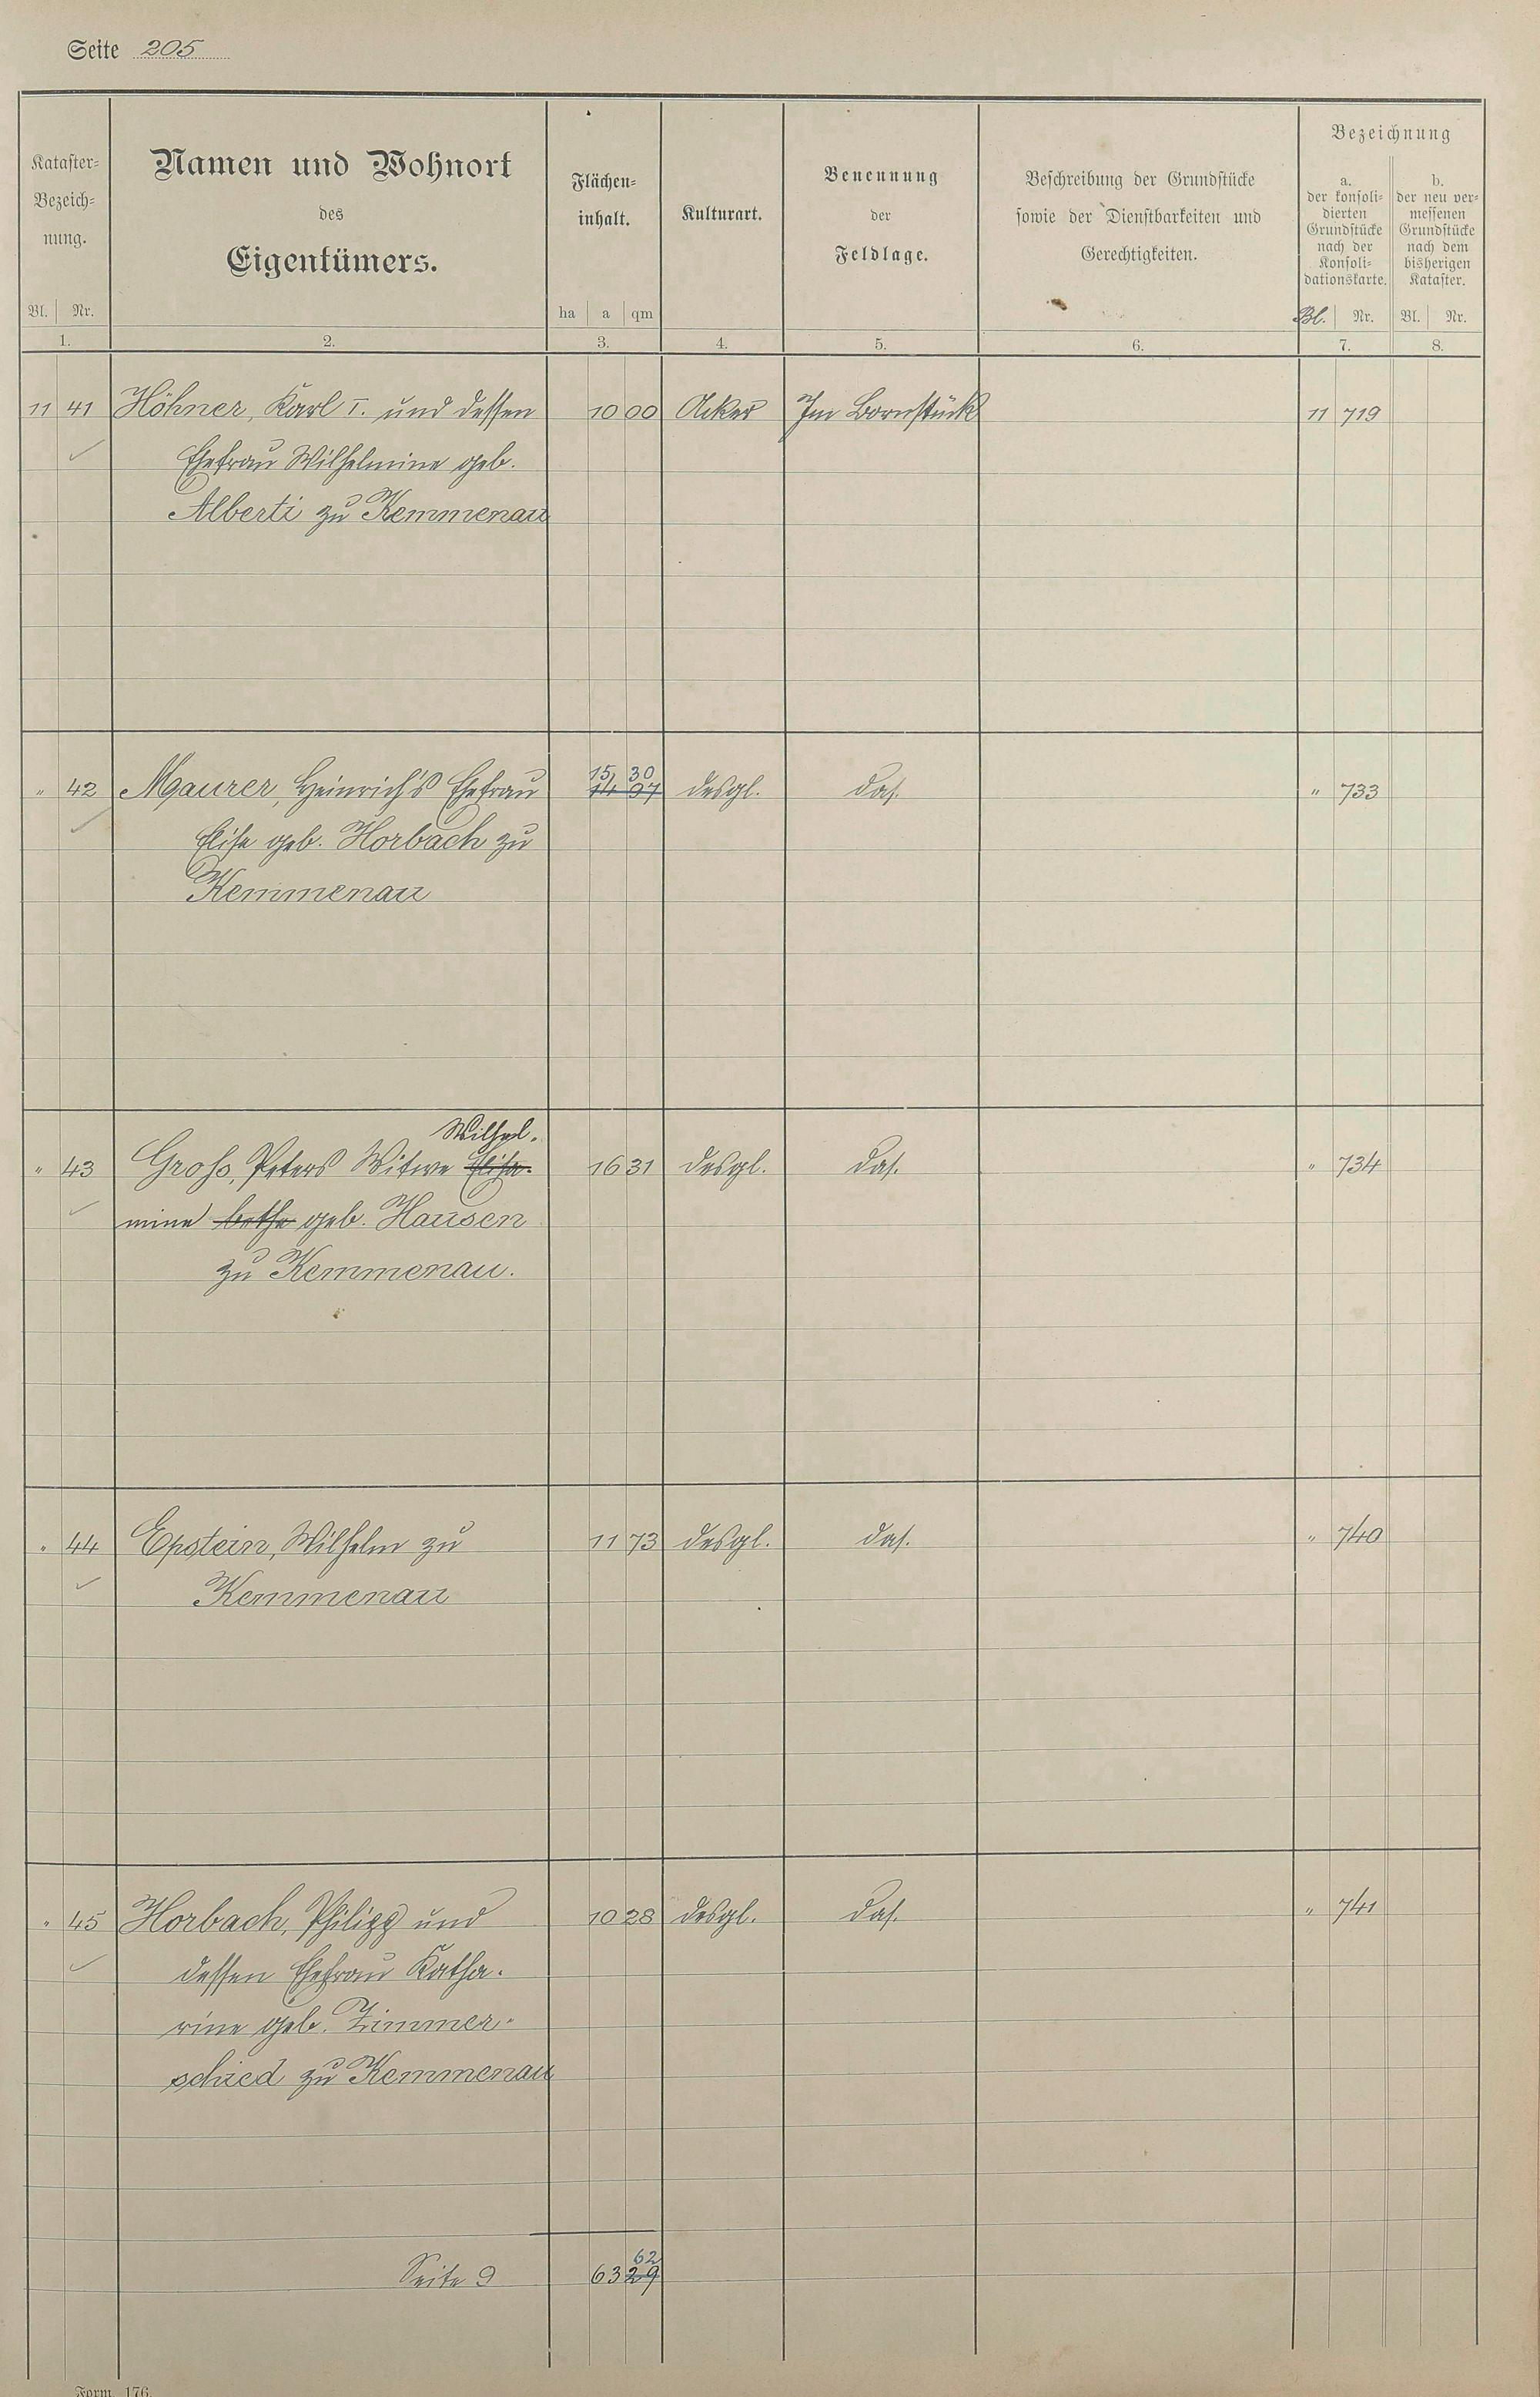 Seite 205
Kataster-Bezeichnung.
Bl. Nr.
1.
Namen und Wohnort
des
Eigentümers.
2.
Flächen-
inhalt.
ha a qm
3.
Kulturart.
4.
Benennung
der
Feldlage.
5.
Beschreibung der Grundstücke
sowie der Dienstbarkeiten und
Gerechtigkeiten.
6.
Bezeichnung
a.
der konsoli-
dierten
Grundstücke
nach der
Konsoli-
dationskarte.
Bl. Nr.
7.
b.
der neu ver-
messenen
Grundstücke
nach dem
bisherigen
Kataster.
Bl. Nr.
8.
11 41 Höhner, Karl I. und dessen 10 00 Acker Im Bornstück 11 719
Ehefrau Wilhelmine geb.
Alberti zu Kemmenau
15 30
" 42 Maurer, Heinrich's Ehefrau 14 97 desgl. das. " 733
Elise geb. Horbach zu
Kemmenau
Wilhel-
" 43 Groß, Peters Witwe Elisa- 16 31 desgl. das. " 734
mine bethe geb. Hausen
zu Kemmenau.
" 44 Epstein, Wilhelm zu 11 73 desgl. das. " 740
Kemmenau
" 45 Horbach, Philipp und 10 28 desgl. das. " 741
dessen Ehefrau Katha-
rine geb. Zimmer-
schied zu Kemmenau
62
Seite 9 63 29
Form. 176.